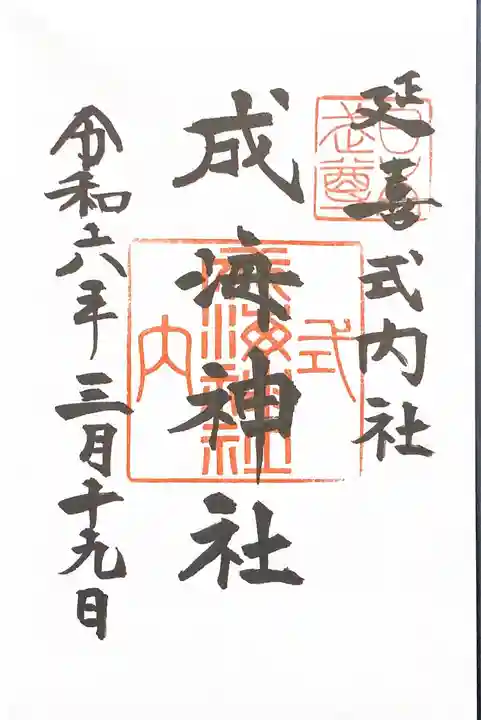 延喜式内社
成海神社
令和六年三月十九日
式
成海神社
内